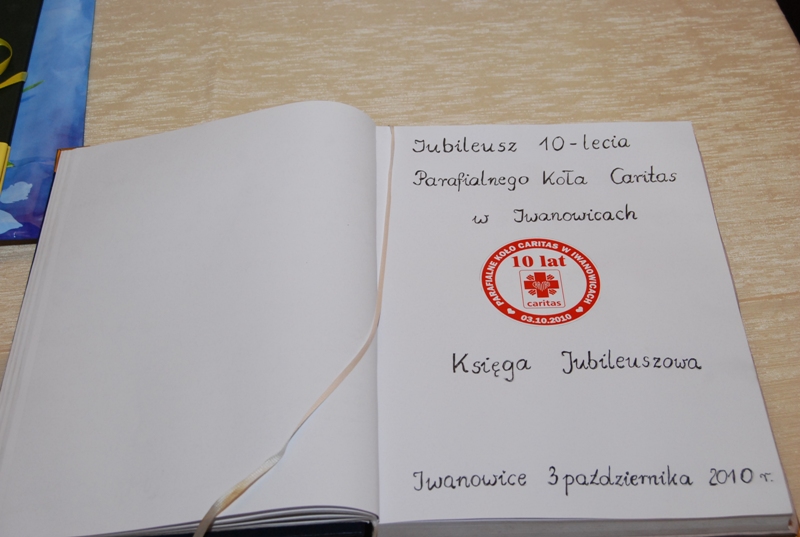 Jubileusz 10-lecia
Parafialnego Koła Caritas
w Iwanowicach
PARAFIALNE KOŁO CARITAS W IWANOWICACH
10 lat
caritas
03.10.2010
Księga Jubileuszowa
Iwanowice 3 października 2010 r.